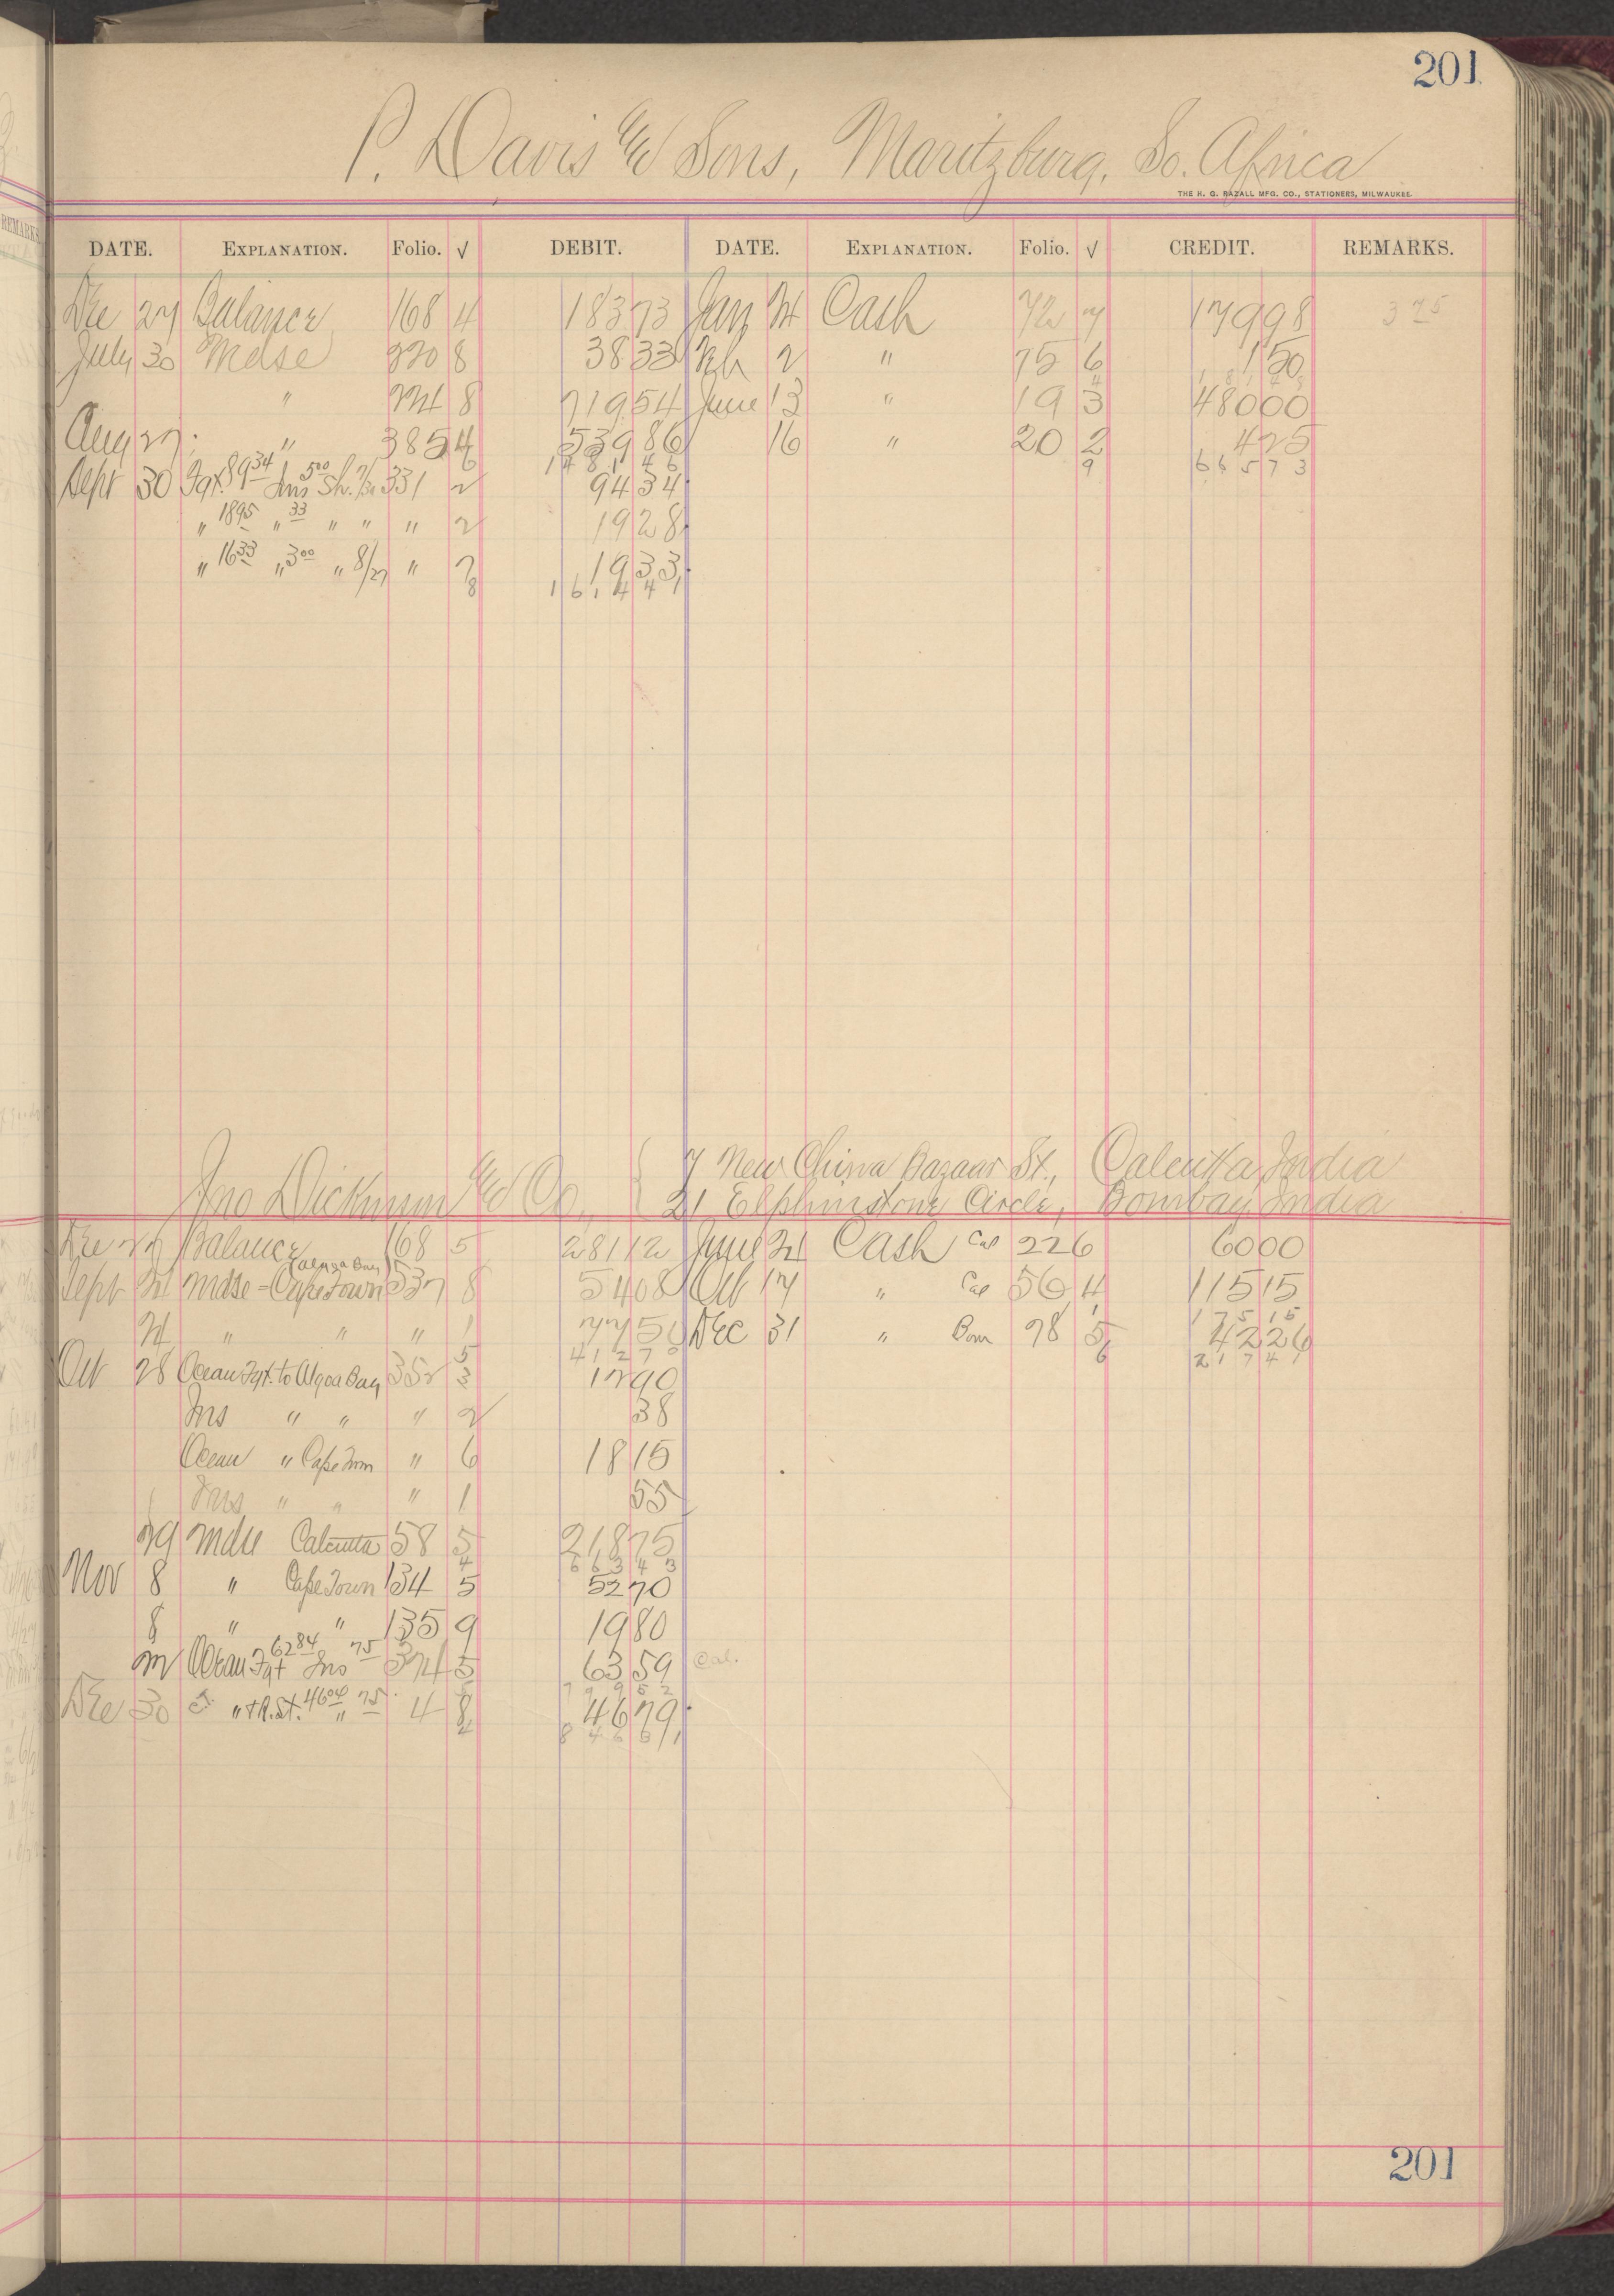 201
P. Davis & Sons, Maritzburg, So. Africa
THE H. G. RAZALL MFG. CO., STATIONERS, MILWAUKEE.
DATE. EXPLANATION. Folio. √ DEBIT. DATE. EXPLANATION. Folio. √ CREDIT. REMARKS.
Dec 27 Balance 168 4 183 73 Jan 24 Cash 72 7 179 98 3 75
July 30 Mdse 220 8 38 33 Feb 2 " 75 6 1 50
4 1 8 1 4 8
" 8 719 54 June 13 " 19 3 480 00
Aug 27 " 385 4 539 86 16 " 20 2 4 25
6 1 4 8 1 4 6 9 6 6 5 7 3
Sept 30 Fgt. 89 34 Ins 5 00 Sh. 7/30 331 2 94 34
" 18 95 " 33 " " " 2 19 28
" 16 33 " 3 00 " 8/27 " 7 19 33
8 1 6 1 4 4 1
Jno Dickinson & Co., { 7 New China Bazaar St., Calcutta, India
21 Elphinstone Circle, Bombay, India
Dec 27 Balance 168 5 281 12 June 24 Cash Cal 226 60 00
(Algoa Bay)
Sept 24 Mdse - Cape Town 537 8 54 08 Oct 17 " Cal 56 4 115 15
1 1 7 5 1 5
24 " " " 1 77 50 Dec 31 " Bom 78 5 42 26
5 4 1 2 7 0 6 2 1 7 4 1
Oct 28 Ocean Fgt. to Algoa Bay 352 3 12 90
Ins " " " 2 38
Ocean " Cape Town " 6 18 15
Ins " " " 1 55
29 Mdse Calcutta 58 5 218 75
4 6 6 3 4 3
Nov 8 " Cape Town 134 5 52 70
8 " " 135 9 19 80
Ocean Fgt 62 84 Ins 75 374 5 63 59 Cal.
7 9 9 5 2
Dec 30 " & R. St. 46 04 " 75 4 8 46 79
2 8 4 6 3 1
201